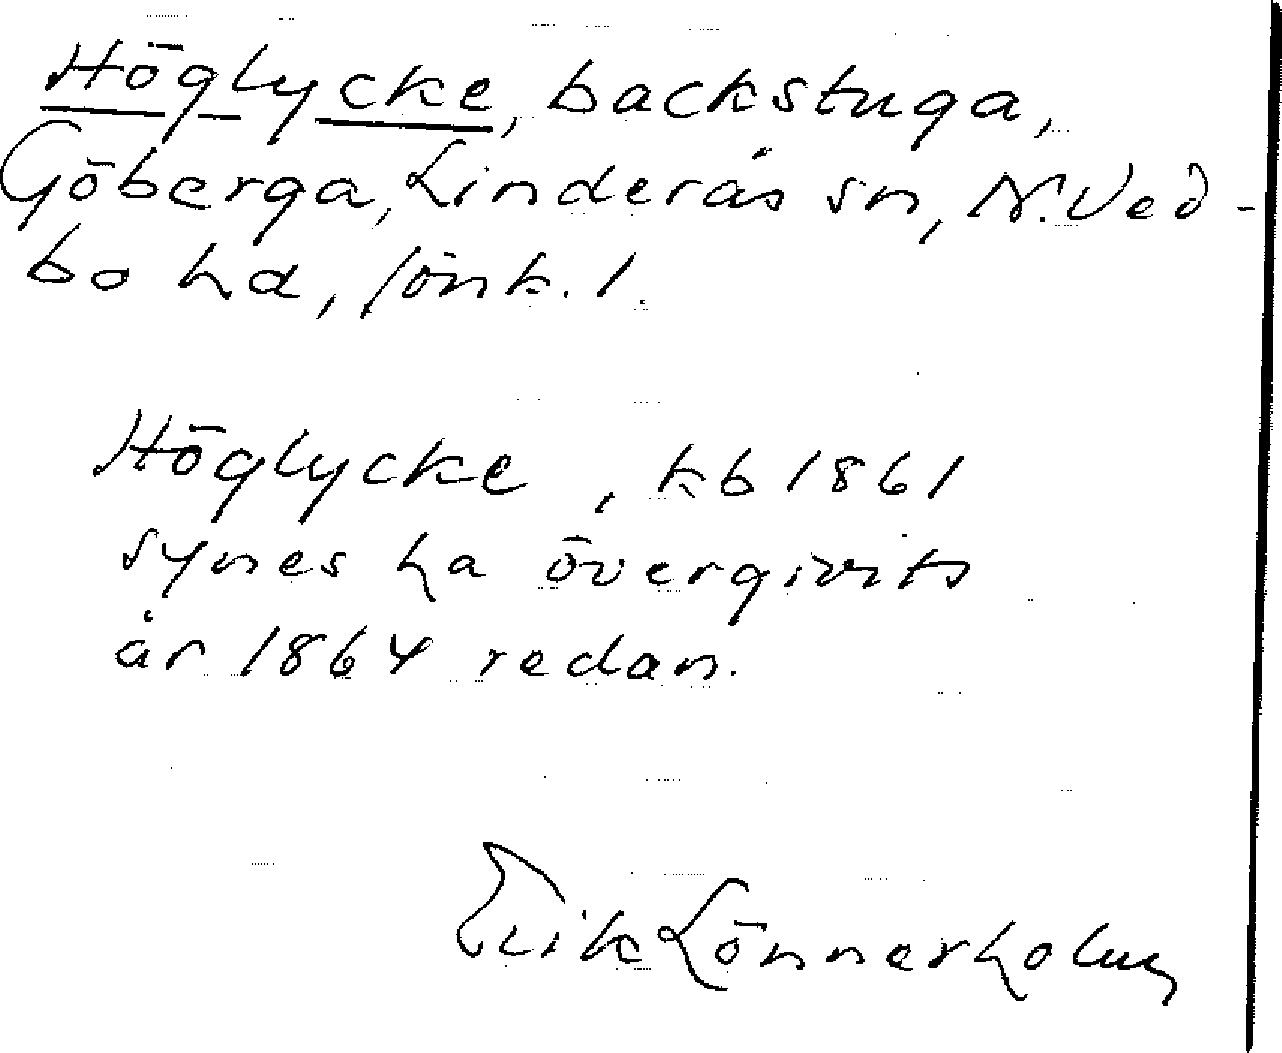 Höglycke, backstuga,
Göberga, Linderås sn, N. Ved-
bo hd, Jönk. l.
Höglycke, kb 1861
synes ha övergivits
år 1864 redan.
Erik Lönnerholm